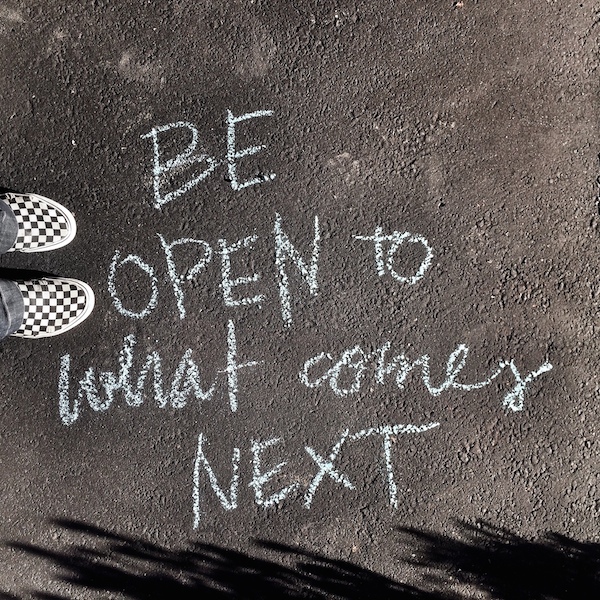 BE
OPEN to
what comes
NEXT